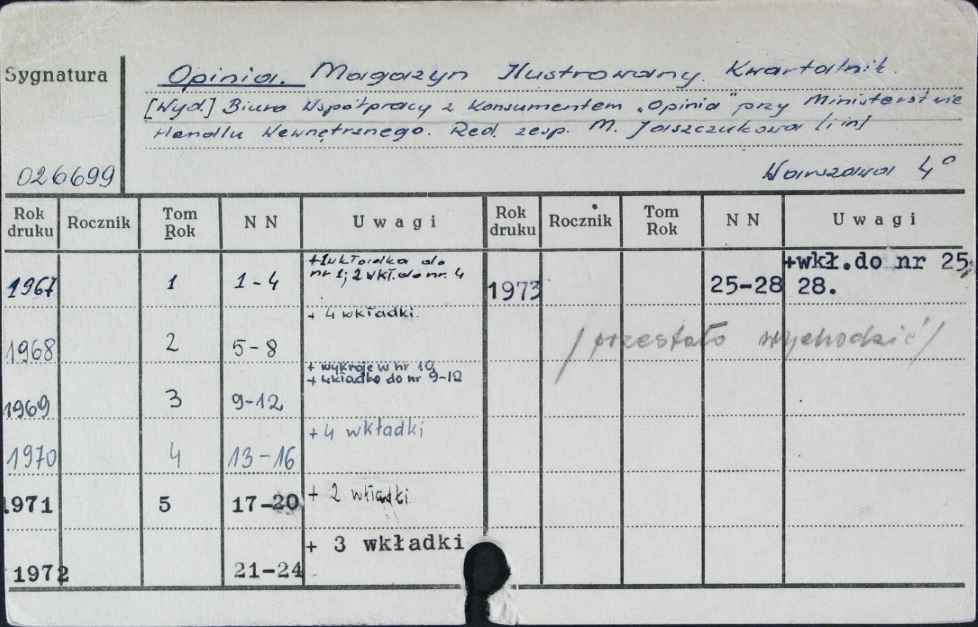 Sygnatura
Opinia. Magazyn Ilustrowany. Kwartalnik.
[Wyd.] Biuro Współpracy z Konsumentem „Opinia" przy Ministerstwie
Handlu Wewnętrznego. Red. zesp. M. Jaszczukowa [i in]
026699
Warszawa 4°
Rok druku Rocznik Tom Rok N N Uwagi Rok druku Rocznik Tom Rok N N Uwagi
1967 1 1-4 +1 wkładka do nr 1; 2 wkł. do nr. 4 1973 25-28 +wkł.do nr 25, 28.
1968 2 5-8 + 4 wkładki /przestało wychodzić/
1969 3 9-12 + wykroje w nr 10 + wkładka do nr 9-12
1970 4 13-16 +4 wkładki
1971 5 17-20 + 2 wkładki
1972 21-24 + 3 wkładki